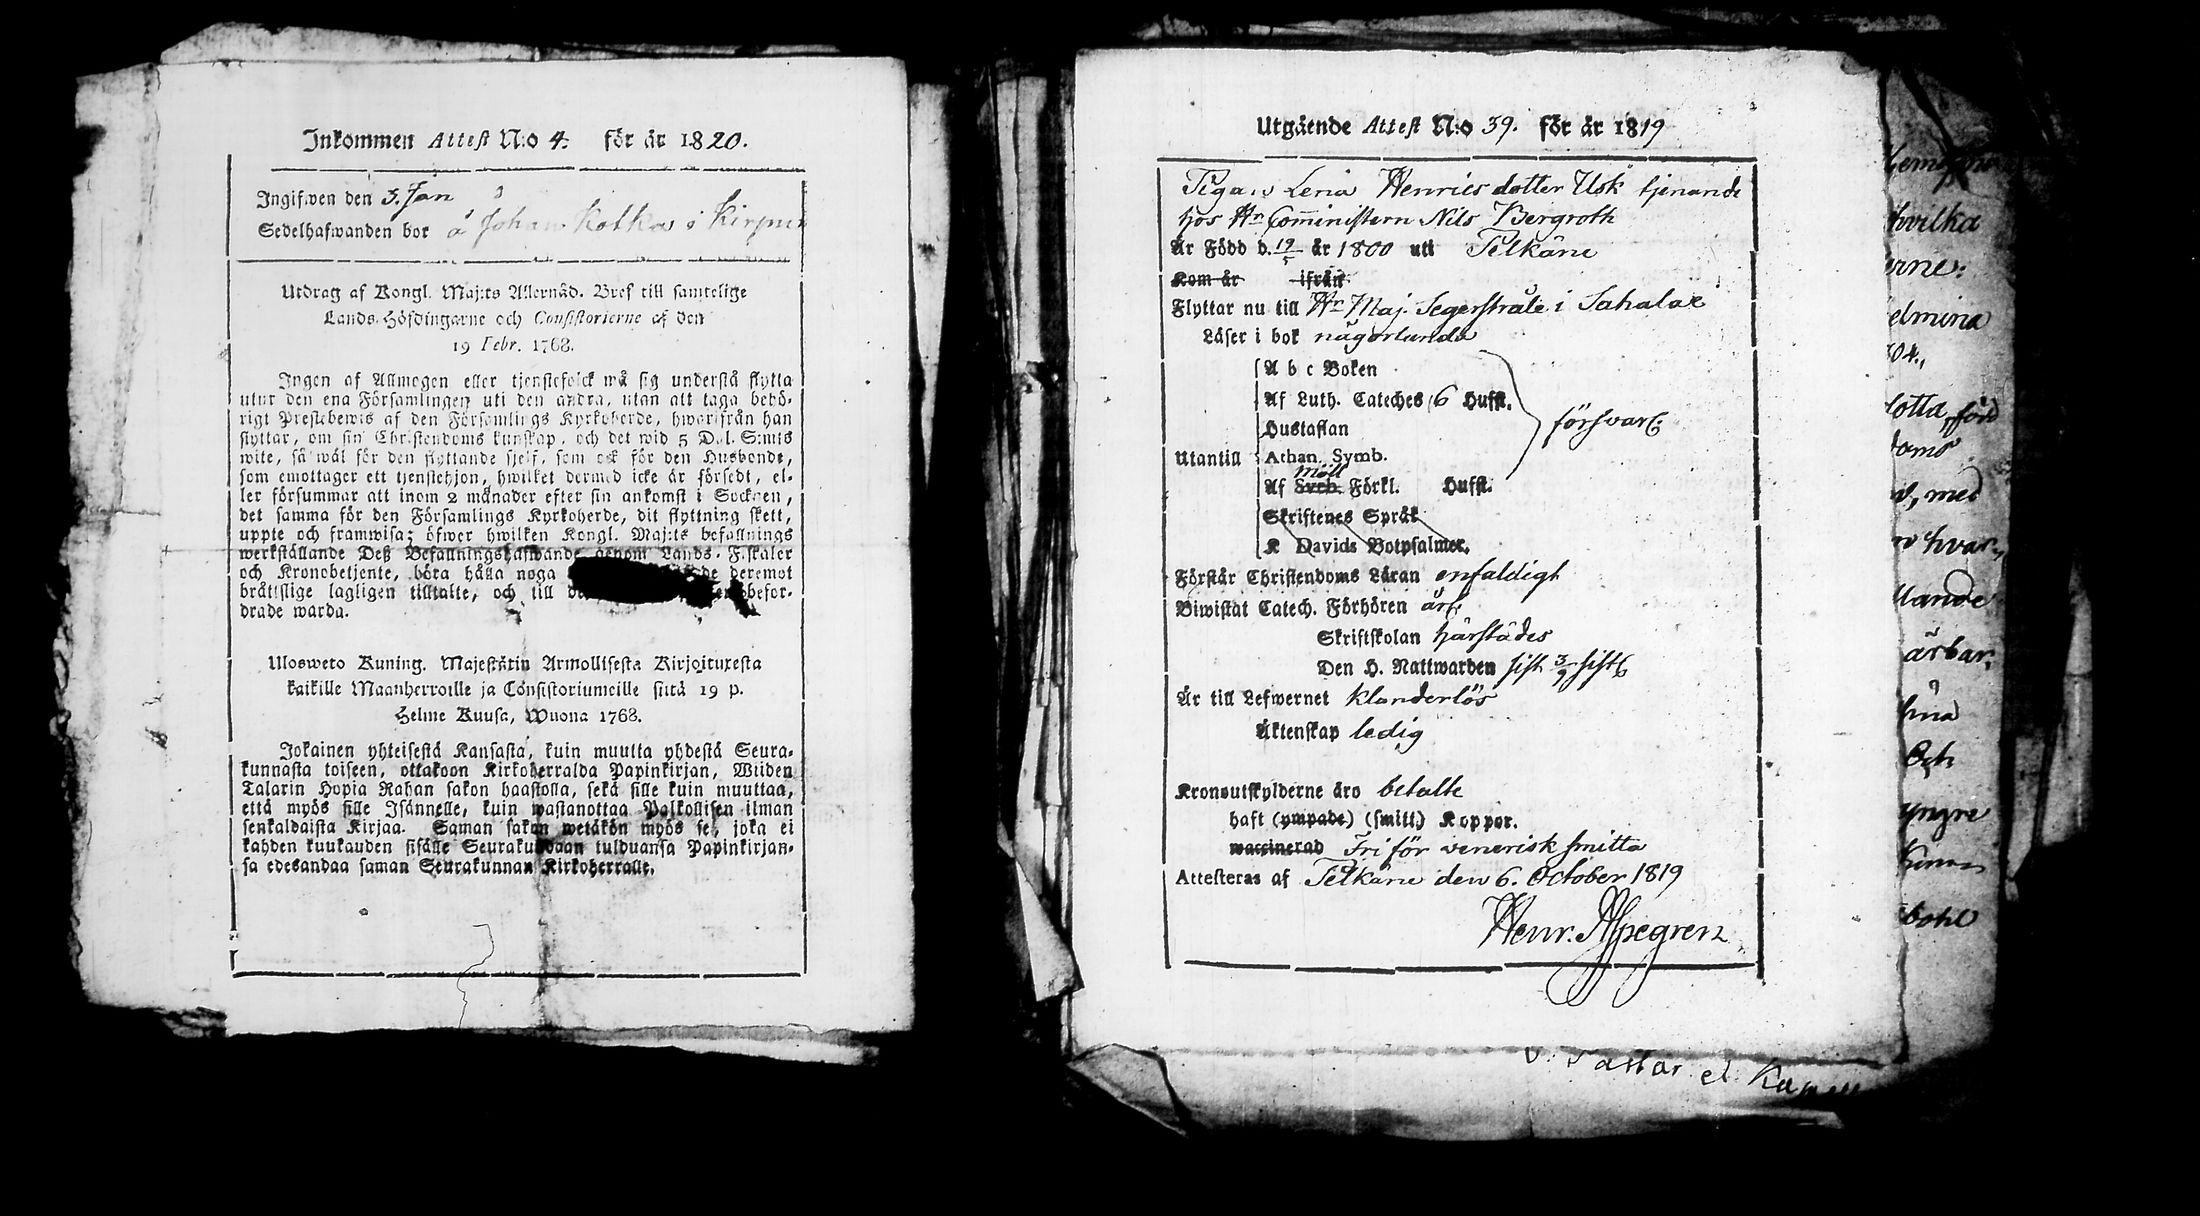 Inkommen Attest N:o 4. för år 1820.
Ingifwen den 3. Jan
Sedelhafwanden bor å Johan Kotka i
Utdrag af Kongl. Maj:ts Allernåd. Bref till samtelige
Lands-Höfdingarne och Consistorierne af den
19 Febr. 1768.
Ingen af Allmogen eller tjenstefolck må sig understå flytta
utur den ena Församlingen uti den andra, utan att taga behö-
rigt Prestebewis af den Församlings Kyrkoherde, hwarifrån han
flyttar, om sin Christendoms kunskap, och det wid 5 Dal. S:mts
wite, så wäl för den flyttande sjelf, som ock för den Husbonde,
som emottager ett tjenstehjon, hwilket dermed icke är försedt, el-
ler försummar att inom 2 månader efter sin ankomst i Socknen,
det samma för den Församlings Kyrkoherde, dit flyttning skett,
uppte och framwisa; öfwer hwilken Kongl. Maj:ts befallnings
werkställande Deß Befallningshafwande genom Lands-Fiskaler
och Kronobetjente, böra hålla noga de deremot
bråttslige lagligen tilltalte, och till befor-
drade warda.
Ulosweto Kuning. Majestätin Armollisesta Kirjoituxesta
kaikille Maanherroille ja Consistoriumeille siitä 19 p.
Helme Kuusa, Wuona 1768.
Jokainen yhteisestä Kansasta, kuin muutta yhdestä Seura-
kunnasta toiseen, ottakoon Kirkoherralda Papinkirjan, Wiiden
Talarin Hopia Rahan sakon haastolla, sekä sille kuin muuttaa,
että myös sille Isännelle, kuin wastanottaa Palkollisen ilman
senkaldaista Kirjaa. Saman sakon wetäkön myös se, joka ei
kahden kuukauden sisälle Seurakundaan tulduansa Papinkirjan-
sa edesandaa saman Seurakunnan Kirkoherralle.
Utgående Attest N:o 39. för år 1819
Pigan Lena Henrics dotter Usk tjenande
hos Hr Comministern Nils Bergroth
Är Född d. 19 år 1800 uti Pelkäne
Kom år ifrån
Flyttar nu till Hr Maj. Segerstråle i Sahalax
Läser i bok någorlunda
A b c Boken
Af Luth. Cateches 6 Hufst.
Hustaflan
försvarl:
Utantill Athan. Symb.
Möll
Af Sveb. Förkl. Hufst.
Skriftenes Språk
K Davids Botpsalmer.
Förstår Christendoms Läran enfaldigt
Biwistat Catech. Förhören årl
Skriftskolan härstädes
Den H. Nattwarden sist 3/9 sistl
Är till Lefwernet klanderlös
Äktenskap ledig
Kronoutskylderne äro betalte
haft (ympade) (smitt.) Koppor.
waccinerad Fri för venerisk smitta
Attesteras af Pelkäne den 6. October 1819
Henr. Alpegren
hvilka
elmina
dotta, född
med
hvar
ärbar,
Och
yngre